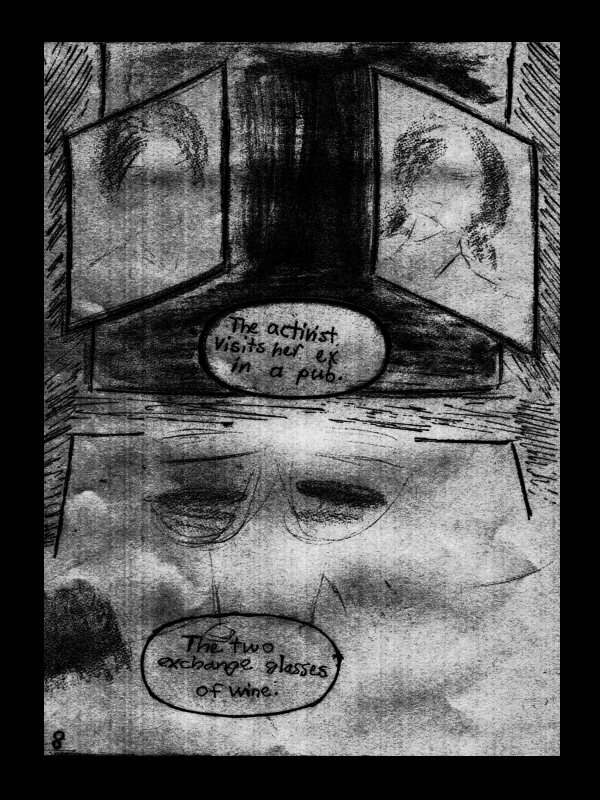 The activist
visits her ex
in a pub.
The two
exchange glasses
of wine.
8